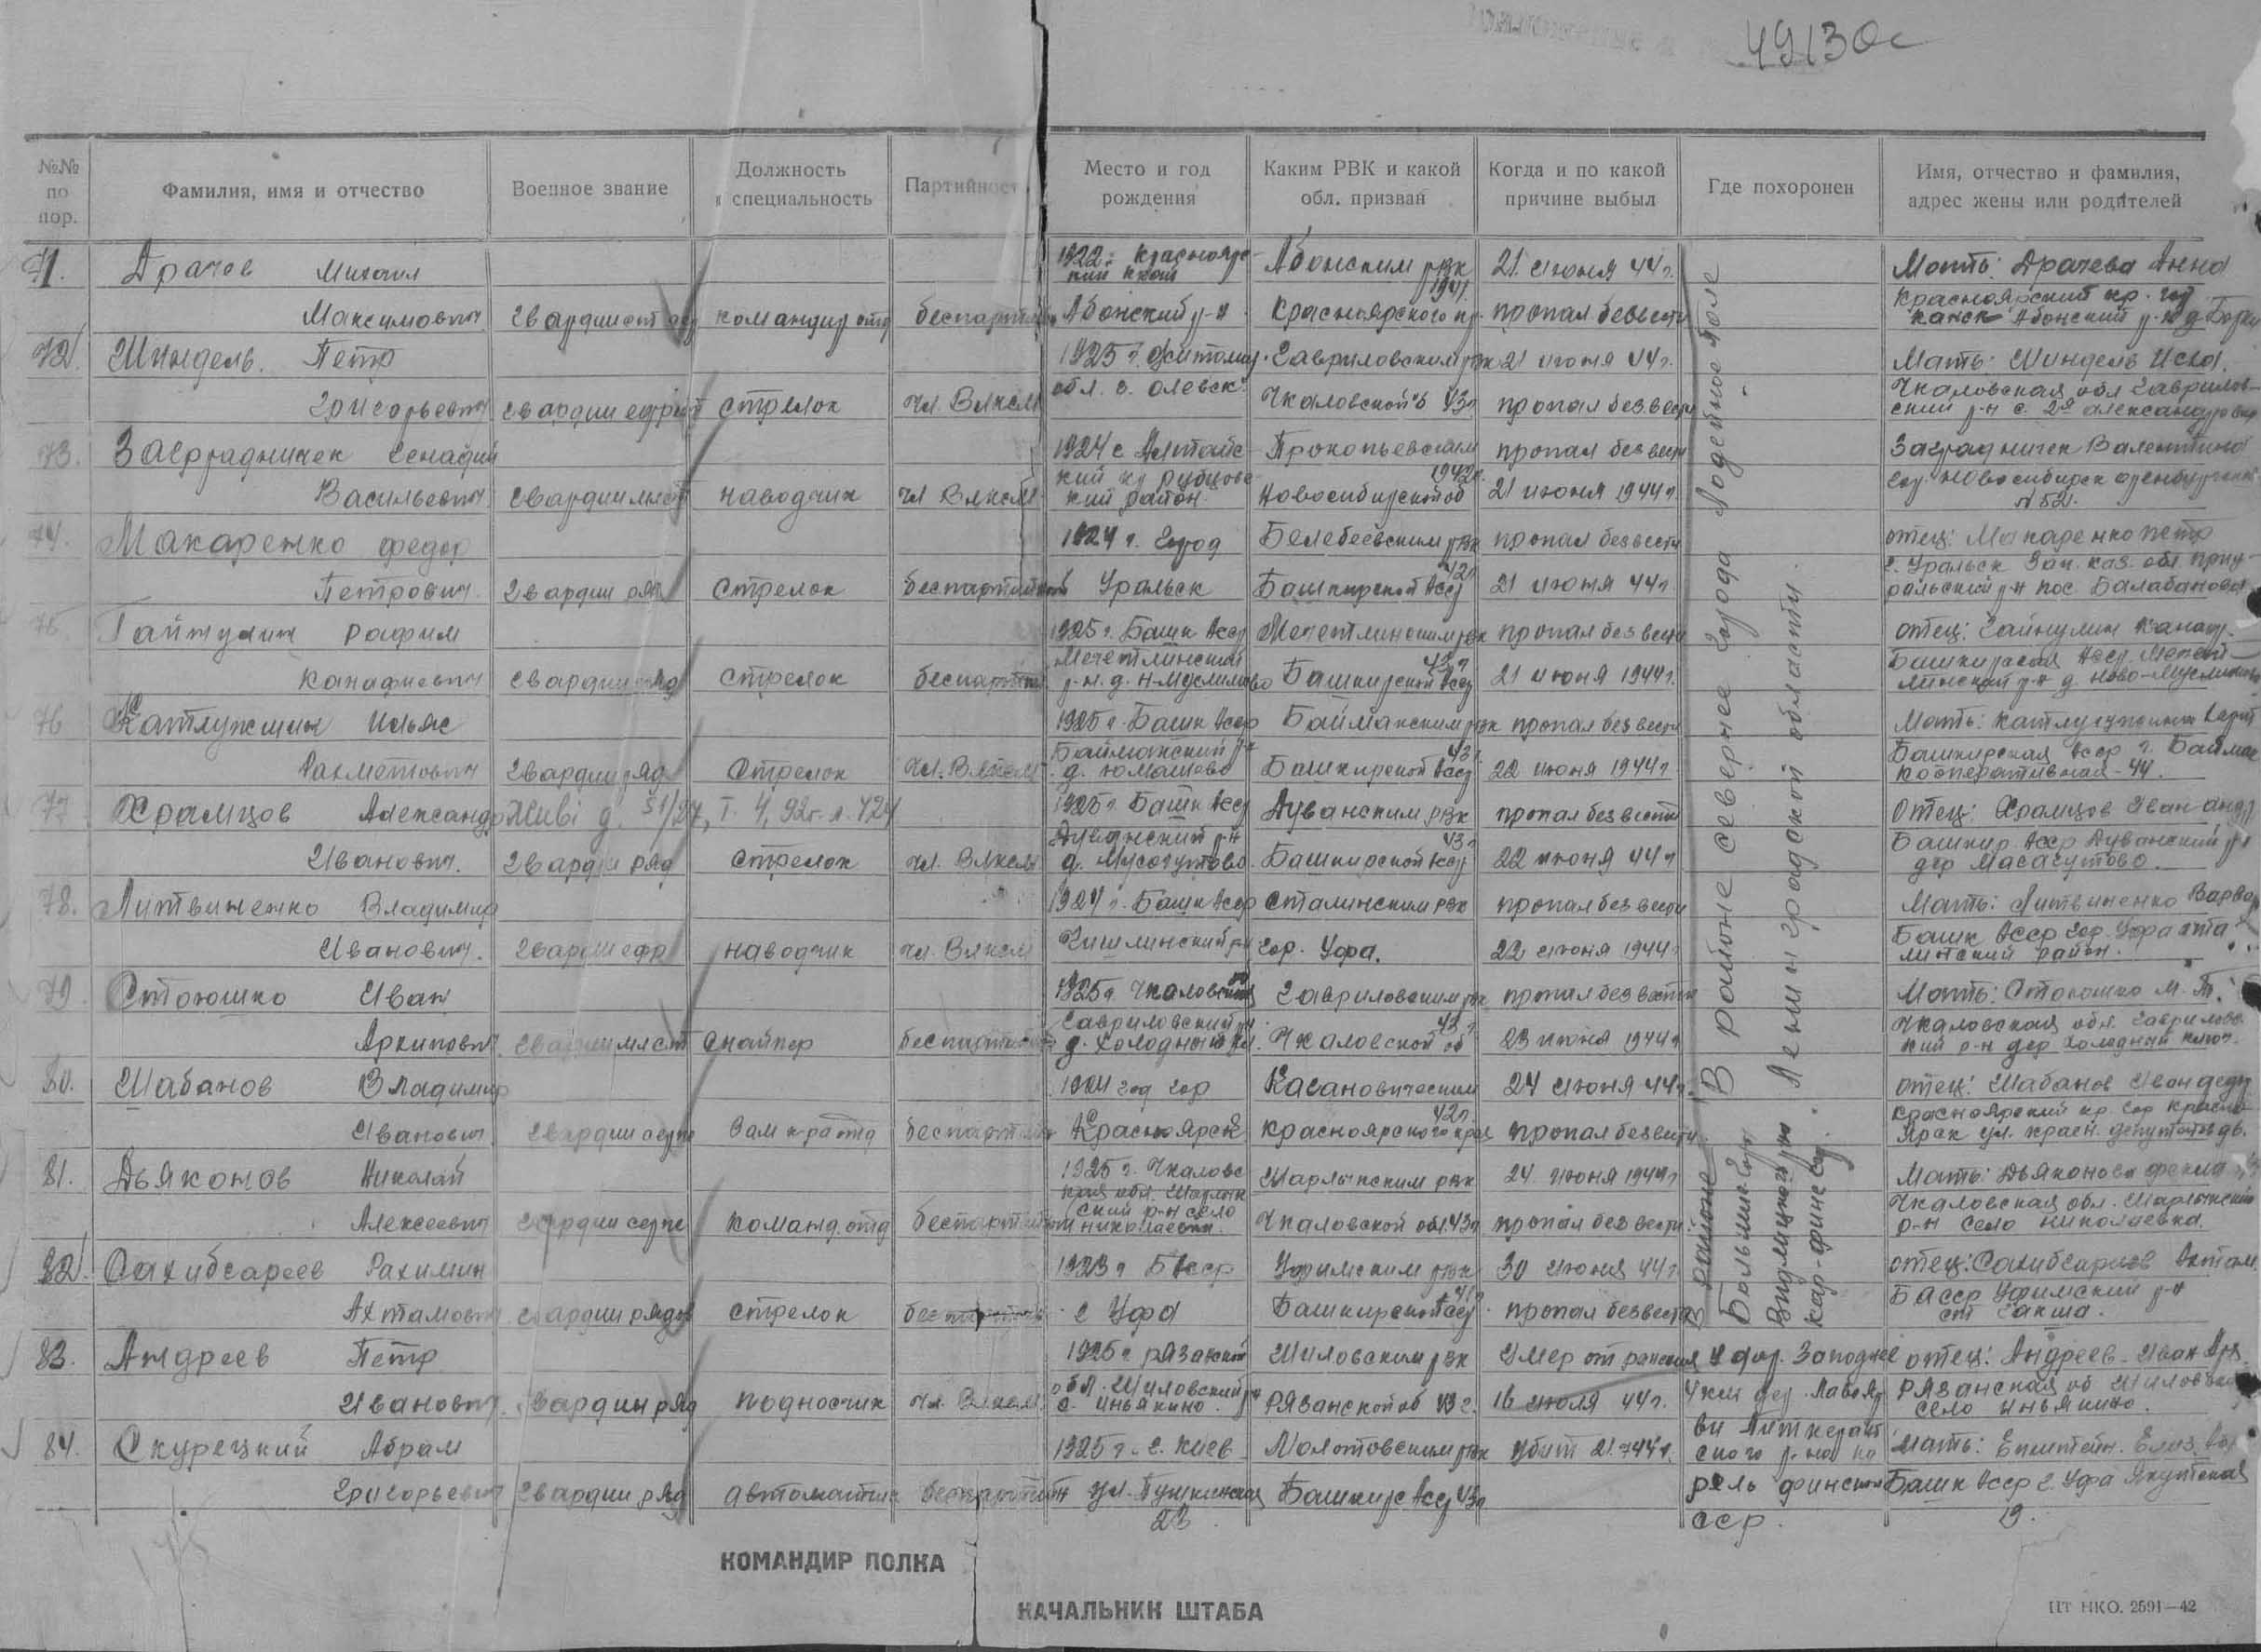 49130с
№№ по пор.
Фамилия, имя и отчество
Военное звание
Должность и специальность
Партийность
Место и год рождения
Каким РВК и какой обл. призван
Когда и по какой причине выбыл
Где похоронен
Имя, отчество и фамилия, адрес жены или родителей
71. Драчев Михаил 1922 г. Красноярс- Абанским рвк 21 июня 44 г. Мать: Драчева Анна
кий край 1941.
Максимович гвардии командир отд беспартийн Абанский р-н Красноярского кр. пропал безвести Красноярский кр. гор Канск Абанский р-н д
72. Шиндель Петр 1925 г. Житомир. Гавриловским рвк 21 июня 44 г. Мать: Шиндель
Григорьевич гвардии ефрейт стрелок чл. Влксм обл. г. Олевск. Чкаловской об 43 г пропал безвести Чкаловская обл Гаврилов-
ский р-н с. 2е Александровка
73. Заградничек Генадий 1924 г Алтайс- Прокопьевским пропал безвести Заградничек Валентина
Васильевич гвардии мл ст наводчик чл Влксм кий кр Рубцовс- 1942 г.
кий район. Новосибирской об 21 июня 1944 г. гор Новосибирск
№ 52.
74. Макаренко Федор 1924 г. город Белебеевским рвк пропал безвести отец: Макаренко Петр
Петрович. гвардии ряд стрелок беспартийный Уральск Башкирской Асср 42 г 21 июня 44 г г. Уральск Зап. каз. обл Приу-
ральский р-н пос. Балабаново
75. Гайнулин Рафим 1925 г. Башк Асср Мечетлинским рвк пропал безвести отец: Гайнулин
Канафиевич гвардии ряд стрелок беспартийн Мечетлинский
р-н. д. Н-Муслимово Башкирской Асср 43 г 21 июня 1944 г. Башкирская Асср Мечет-
линский р-н д Ново-Муслимово
76 Катлужин Ильяс 1925 г. Башк Асср Баймакским рвк пропал безвести Мать:
Рахметович гвардии ряд стрелок чл. Влксм Баймакский р-н
д. Юмашево Башкирской Асср 43 г. 22 июня 1944 г Башкирская Асср г. Баймак
Кооперативная-44.
77. Храмцов Александр Живі д. 51/27, т. 4, 92г. л. 424 1925 г. Башк Асср Дуванским рвк пропал безвести отец: Храмцов Иван
Иванович. гвардии ряд стрелок чл. Влксм Дуванский р-н
д. Мусогутово Башкирской Асср 43 г 22 июня 44 г Башкир. Асср Дуванский р-н
дер Масагутово.
78. Литвиненко Владимир 1924 г. Башк Асср Сталинским рвк пропал безвести Мать: Литвиненко Варвар
Иванович. гвардии ефр наводчик чл. Влксм Чишлинский р-н гор. Уфа. 22 июня 1944 г Башк Асср гор. Уфа Ста-
линский район.
79. Стоюшко Иван 1925 г. Чкаловская Гавриловским рвк пропал безвести Мать: Стоюшко М. Т.
Архипович гвардии мл ст снайпер беспартийный Гавриловский р-н
д. Холодный кл. Чкаловской об 43 г 23 июня 1944 г Чкаловская обл. Гаврилов-
кий р-н дер Холодный ключ.
80. Шабанов Владимир 1924 год гор Кагановическим 24 июня 44 г. отец: Шабанов Иван
Иванович гвардии серж Зам к-ра отд беспартийн Красноярск Красноярского края 42 г. пропал безвести Красноярский кр. гор Красно-
ярск ул. красн.
81. Дьяконов Николай 1925 г. Чкаловс- Шарлыкским рвк 24 июня 1944 г Мать: Дьяконова
Алексеевич гвардии серж команд. отд беспартийный кая обл. Шарлык-
ский р-н село
Николаевка. Чкаловской обл. 43 г пропал безвести Чкаловская обл. Шарлыкский
р-н село Николаевка.
82. Сахибгареев Рахимин 1923 г БАсср Уфимским рвк 30 июня 44 г. отец: Сахибгариев Ахтам.
Ахтамович гвардии рядов стрелок г Уфа Башкирской Асср пропал безвести БАсср Уфимский р-н
ст Сакма.
83. Андреев Петр 1925 г Рязанской Шиловским рвк Умер от ранения У дор. Западнее отец: Андреев Иван
Иванович гвардии ряд подносчик чл. Влксм обл. Шиловский р-н
с. Инякино Рязанской об 43 г. 16 июля 44 г. 4 км дер. Рязанская об Шиловский
село Инякино.
84. Скурецкий Абрам 1925 г. г. Киев Молотовским рвк убит 21.7.44 г. ского р-на ка- Мать: Епштейн. Елиз.
Григорьевич гвардии ряд автоматчик беспартийн ул. Пушкинская Башкир Асср 43 г рель финской Башк Асср г. Уфа Якутская
23 сср. 19.
В районе севернее города Лодейное поле
Ленинградской области.
В районе
Видлицкого р-на
кар-финс сср.
КОМАНДИР ПОЛКА
НАЧАЛЬНИК ШТАБА
ЦТ НКО. 2591—42